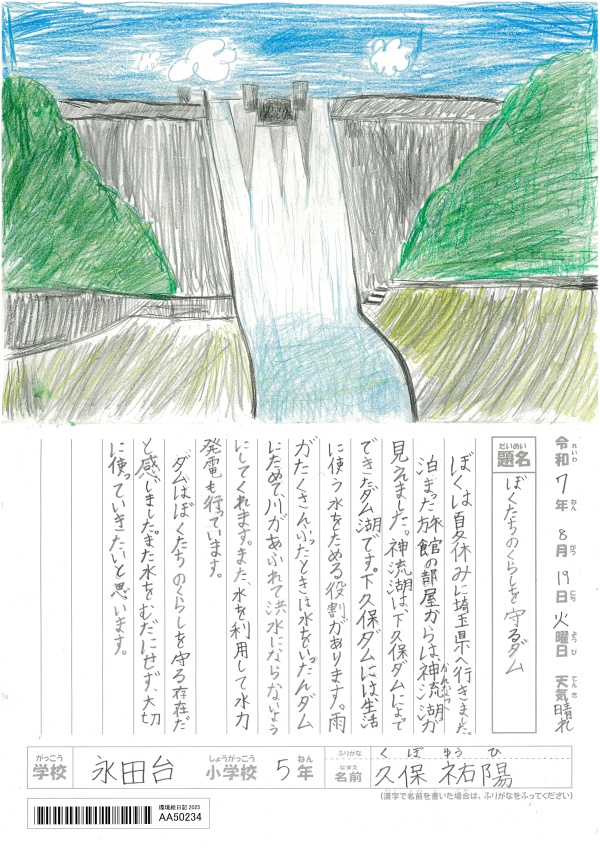 令和7年8月19日火曜日 天気晴れ
れいわ ねん がつ にち ようび てんき
だいめい
題名
ぼくたちのくらしを守るダム
ぼくは夏休みに埼玉県へ行きました。
泊まった旅館の部屋からは、神流湖が
かんなこ
見えました。神流湖は、下久保ダムによって
できたダム湖です。下久保ダムには、生活
に使う水をためる役割があります。雨
がたくさんふったときは水をいったんダム
にためて、川があふれて洪水にならないよう
にしてくれます。また、水を利用して水力
発電も行っています。
ダムはぼくたちのくらしを守る存在だ
と感じました。また水をむだにせず、大切
に使っていきたいと思います。
がっこう しょうがっこう ねん ふりがな くぼ ゆうひ
学校 永田台 小学校 5年 なまえ 名前 久保 祐陽
(漢字で名前を書いた場合は、ふりがなをふってください)
環境絵日記 2025
AA50234